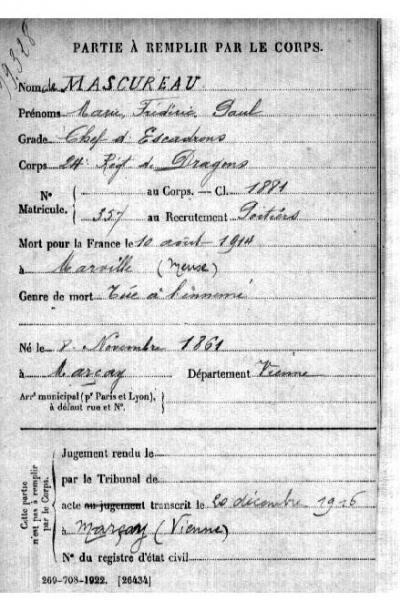 19328
PARTIE À REMPLIR PAR LE CORPS.
Nom de MASCUREAU
Prénoms Marie, Frédéric, Paul
Grade Chef d'Escadrons
Corps 24e Régt de Dragons
N° Matricule. { au Corps. — Cl. 1881
357 au Recrutement Poitiers
Mort pour la France le 10 août 1914
à Marville (Meuse)
Genre de mort Tué à l'ennemi
Né le 8 Novembre 1861
à Marçay Département Vienne
Arrt municipal (pr Paris et Lyon),
à défaut rue et N°.
Cette partie n'est pas à remplir par le Corps.
Jugement rendu le
par le Tribunal de
acte au jugement transcrit le 20 décembre
à Marçay (Vienne)
N° du registre d'état civil
269-708-1922. [26434]